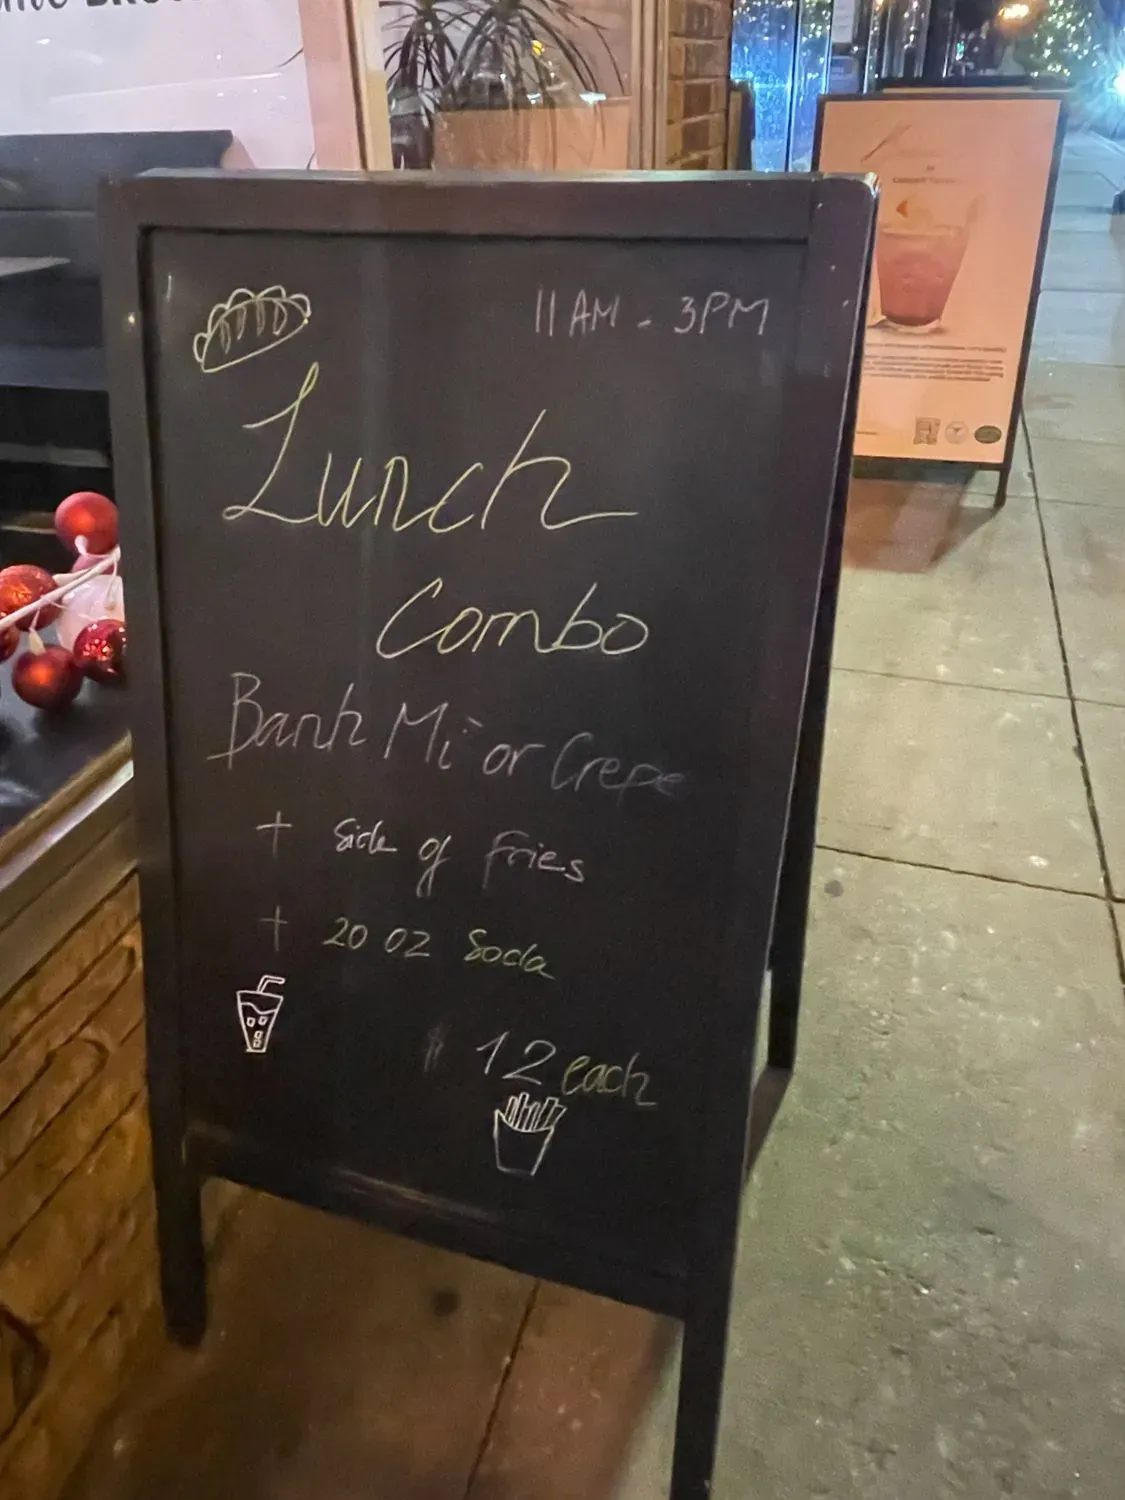 11 AM - 3PM
Lunch
Combo
Banh Mi or Crepe
+ Side of Fries
+ 20 OZ Soda
$ 12 each